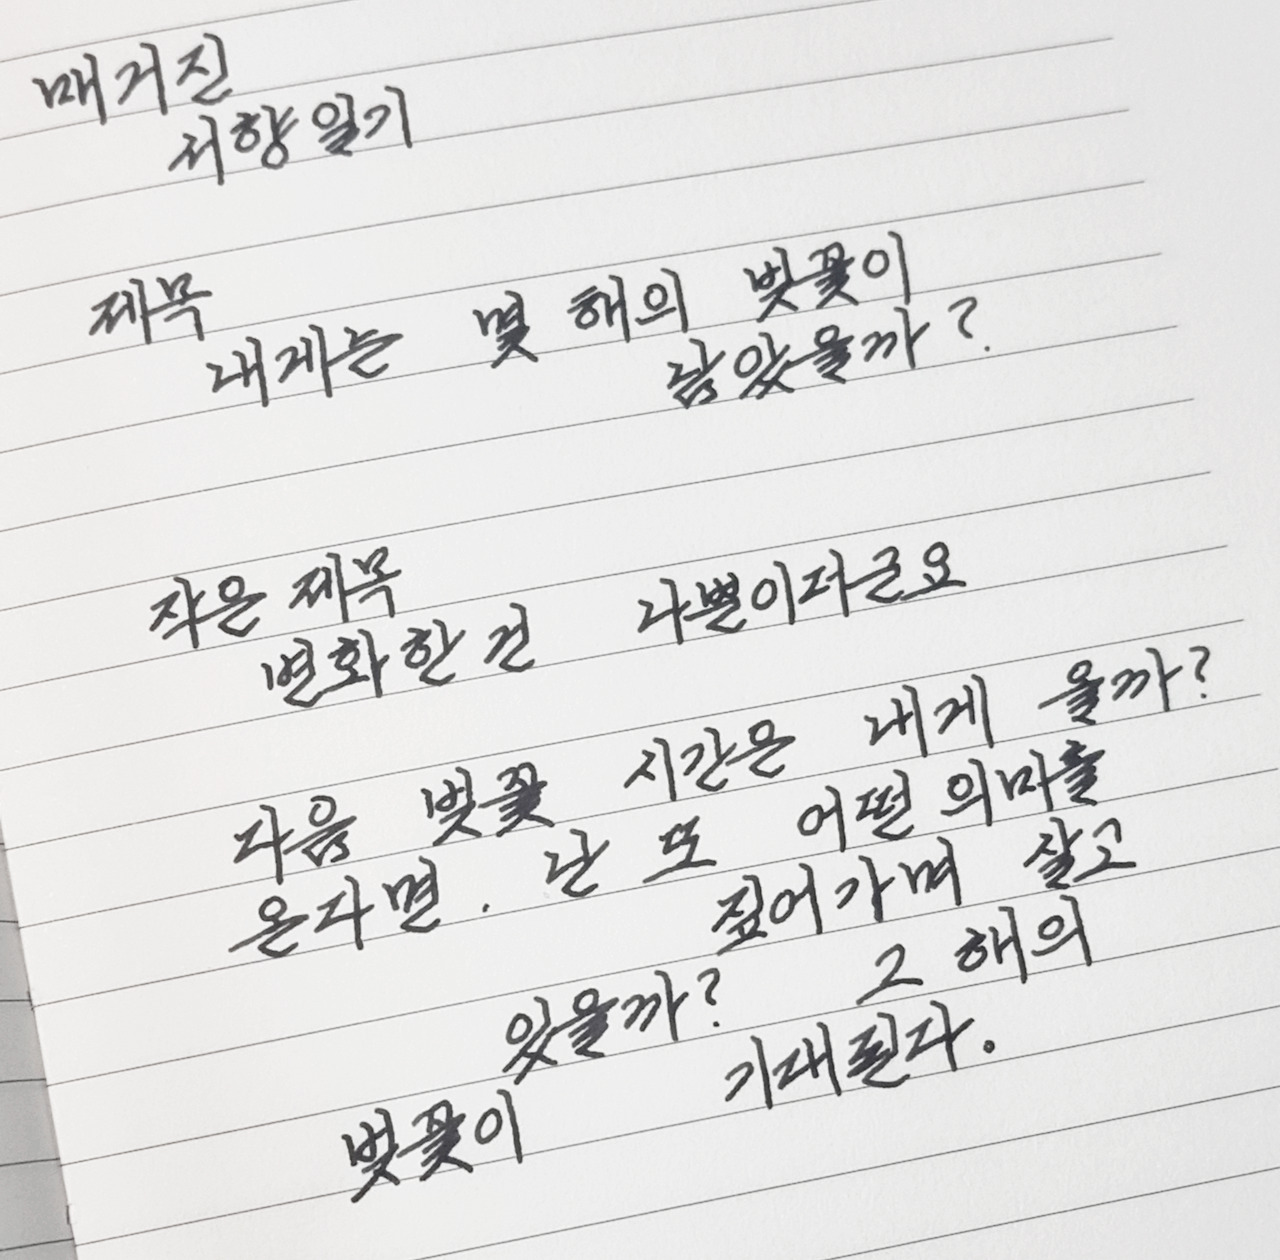 매거진
서향일기
제목
내게는 몇 해의 벚꽃이
남았을까?
작은 제목
변화한 건 나뿐이더군요
다음 벚꽃 시간은 내게 올까?
온다면. 난 또 어떤 의미를
짚어가며 살고
있을까? 그 해의
벚꽃이 기대된다.